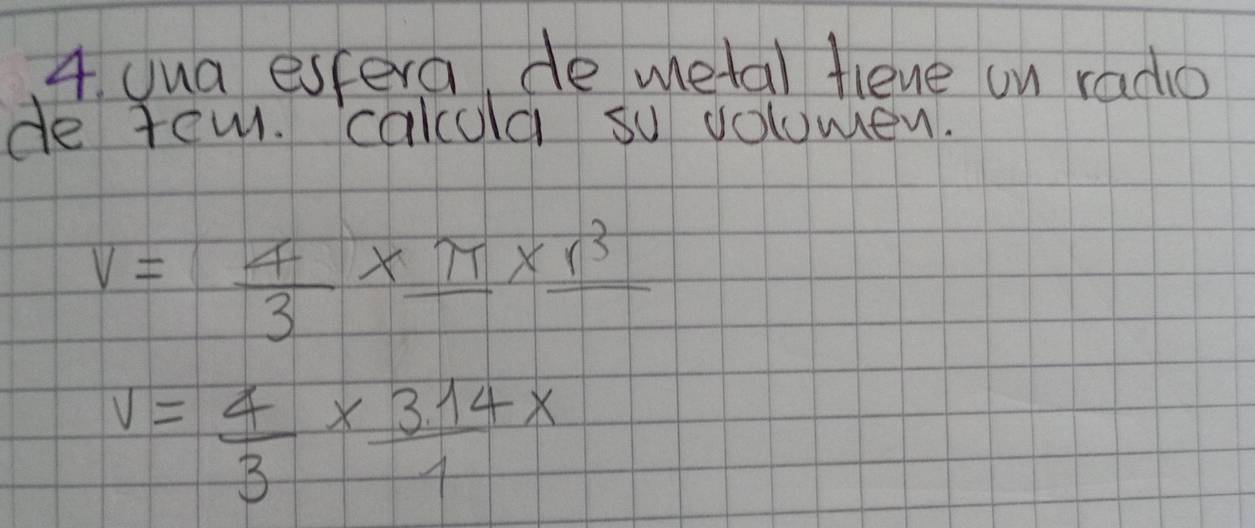 4. una esfera de metal tiene un radio
de 7cm. calcula su volumen.
V = 4/3 × π × r³
V = 4/3 × 3.14/1 ×